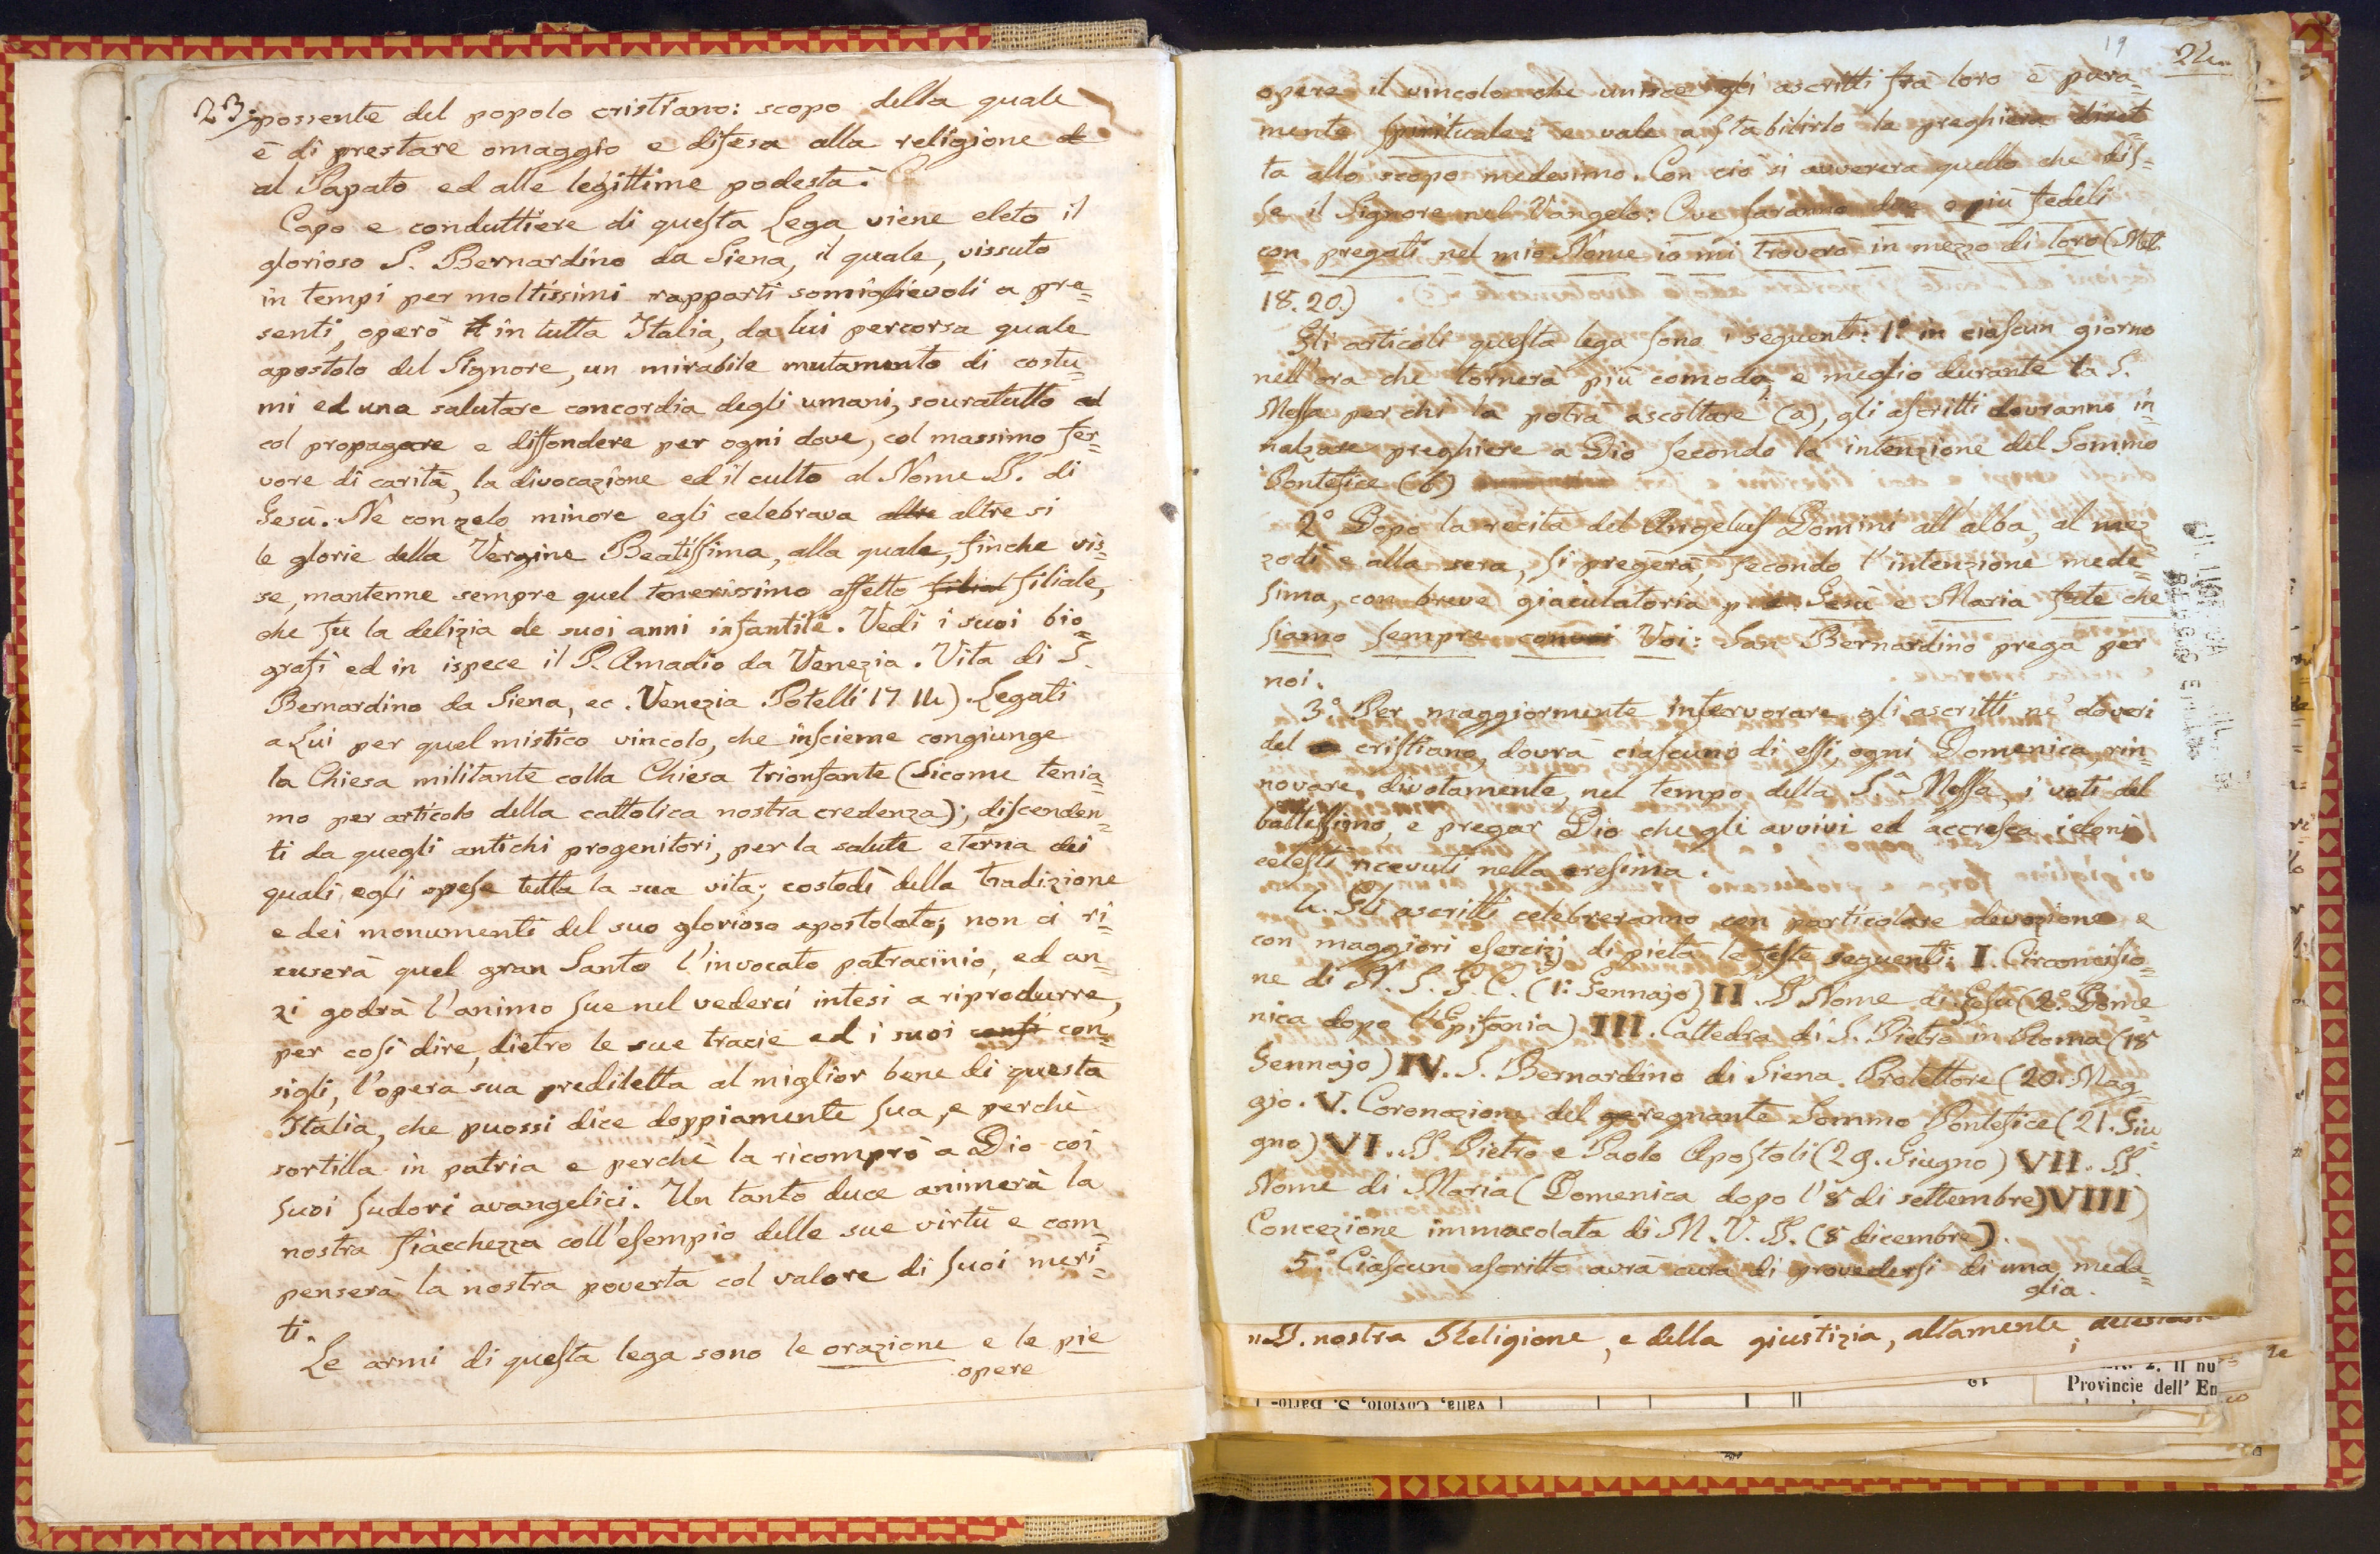 23.
possente del popolo cristiano: scopo della quale
è di prestare omaggio e difesa alla religione
al Papato ed alle legittime podestà.
Capo e conduttiere di questa Lega viene eleto il
glorioso S. Bernardino da Siena, il quale, vissuto
in tempi per moltissimi rapporti somiglievoli a pre=
senti, operò in tutta Italia, da lui percorsa quale
apostolo del Signore, un mirabile mutamento di costu=
mi ed una salutare concordia degli umani, souratutto
col propagare e diffondere per ogni dove, col massimo fer=
vore di carità, la divocazione ed il culto al Nome SS. di
Gesù. Nè con zelo minore egli celebrava altre altre si
le glorie della Vergine Beatissima, alla quale, finche vis=
se, mantenne sempre quel tenerissimo affetto filial filiale,
che fu la delizia de suoi anni infantile. Vedi i suoi bio=
grafi ed in ispece il P. Amadio da Venezia. Vita di S.
Bernardino da Siena, ec. Venezia Potelli 1714) Legati
a Lui per quel mistico vincolo, che inscieme congiunge
la Chiesa militante colla Chiesa trionfante (Sicome tenia=
mo per articolo della cattolica nostra credenza); discenden=
ti da quegli antichi progenitori, per la salute eterna dei
quali egli spese tutta la sua vita; costodi della tradizione
e dei monumenti del suo glorioso apostolato; non ci ri=
cuserà quel gran Santo l'invocato patracinio, ed an=
zi godrà l'animo sue nel vederci intesi a riprodurre,
per così dire, dietro le sue tracie ed i suoi consi con=
sigli, l'opera sua prediletta al miglior bene di questa
Italia, che puossi dice doppiamente sua, e perchè
sortilla in patria e perchè la ricomprò a Dio coi
suoi sudori avangelici. Un tanto duce animerà la
nostra fiacchezza coll'esempio delle sue virtù e com
penserà la nostra poverta col valore di suoi meri=
ti.
Le armi di questa lega sono le orazione e le pie
opere
19
24
opere il vincolo che unisce gli ascritti fra loro è pura=
mente spirituale: e vale a stabilirlo la preghiera diret
ta allo scopo medesimo. Con ciò si avvererà quello che dis=
se il Signore nel Vangelo: Ove saranno due o più fedeli
con pregati nel mio Nome io mi troverò in mezzo di loro (Mat.
18.20.)
Gli articoli questa lega sono i seguenti: 1º in ciascun giorno
nell'ora che tornerà più comoda, e meglio durante la S.
Messa per chi la potrà ascoltare (a), gli ascritti dovranno in=
nalzare preghiere a Dio secondo la intenzione del Sommo
Pontefice (b)
2º Dopo la recita del Angelus Domini all'alba, al mez
zodi e alla sera, si pregerà, secondo l'intenzione mede=
sima, con breve giaculatoria p. e. Gesù e Maria fate che
siamo sempre con voi Voi: San Bernardino prega per
noi.
3º Per maggiormente infervorare gli ascritti ne' doveri
del cristiano, dovrà ciascuno di essi, ogni Domenica, rin=
novare, divotamente, nel tempo della S.ª Messa, i voti del
battessimo, e pregar Dio che gli avvivi ed accresca i doni
celesti ricevuti nella cresima.
4. Gli ascritti celebreranno con particolare devozione e
con maggiori esercizj di pietà le feste seguenti: I. Circoncisio=
ne di N. S. G. C. (1: Gennajo) II. SS Nome di Gesù (2º. Dome=
nica dopo l'Epifania) III. Cattedra di S. Pietro in Roma (18
Gennajo) IV. S. Bernardino di Siena. Protettore (20. Mag=
gio. V. Coronazione del regnante Sommo Pontefice (21. Giu=
gno) VI. SS. Pietro e Paolo Apostoli (29. Giugno) VII. SS.
Nome di Maria (Domenica dopo l'8 di settembre) VIII)
Concezione immacolata di M. V. SS. (8 dicembre).
5º. Ciascun ascritto avrà cura di provedersi di una meda=
glia.
nostra Religione, e della giustizia, altamente,
Provincie dell' En